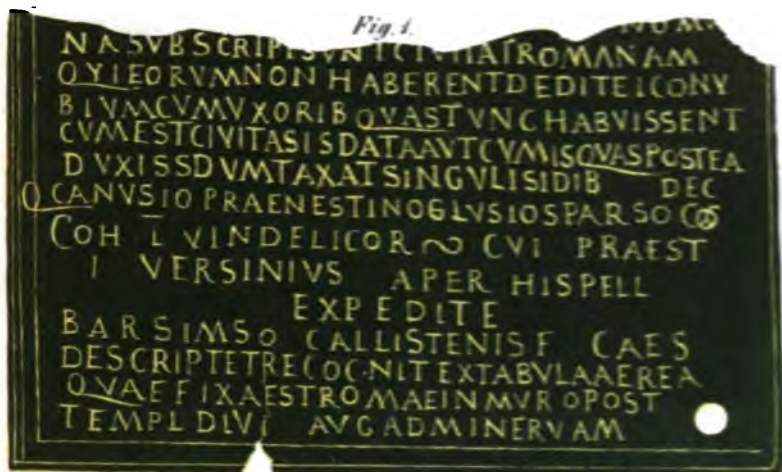 Fig. 1.
NOM
NASVBSCRIPTSVNTCIVITATROMANAM
QVIEORVMNONHABERENTDEDITEICONV
BIVMCVMVXORIBQVASTVNCHABVISSENT
CVMESTCIVITASISDATAAVTCVMISQVASPOSTEA
DVXISSDVMTAXATSINGVLISIDIB DEC
QCANVSIOPRAENESTINOGLVSIOSPARSOCOS
COH I VINDELICOR ∾ CVI PRAEST
I VERSINIVS APER HISPELL
EXPEDITE
BARSIMSO CALLISTENISF CAES
DESCRIPTETRECOGNITEXTABVLAAEREA
QVAEFIXAESTROMAEINMVROPOST
TEMPLDIVI AVGADMINERVAM